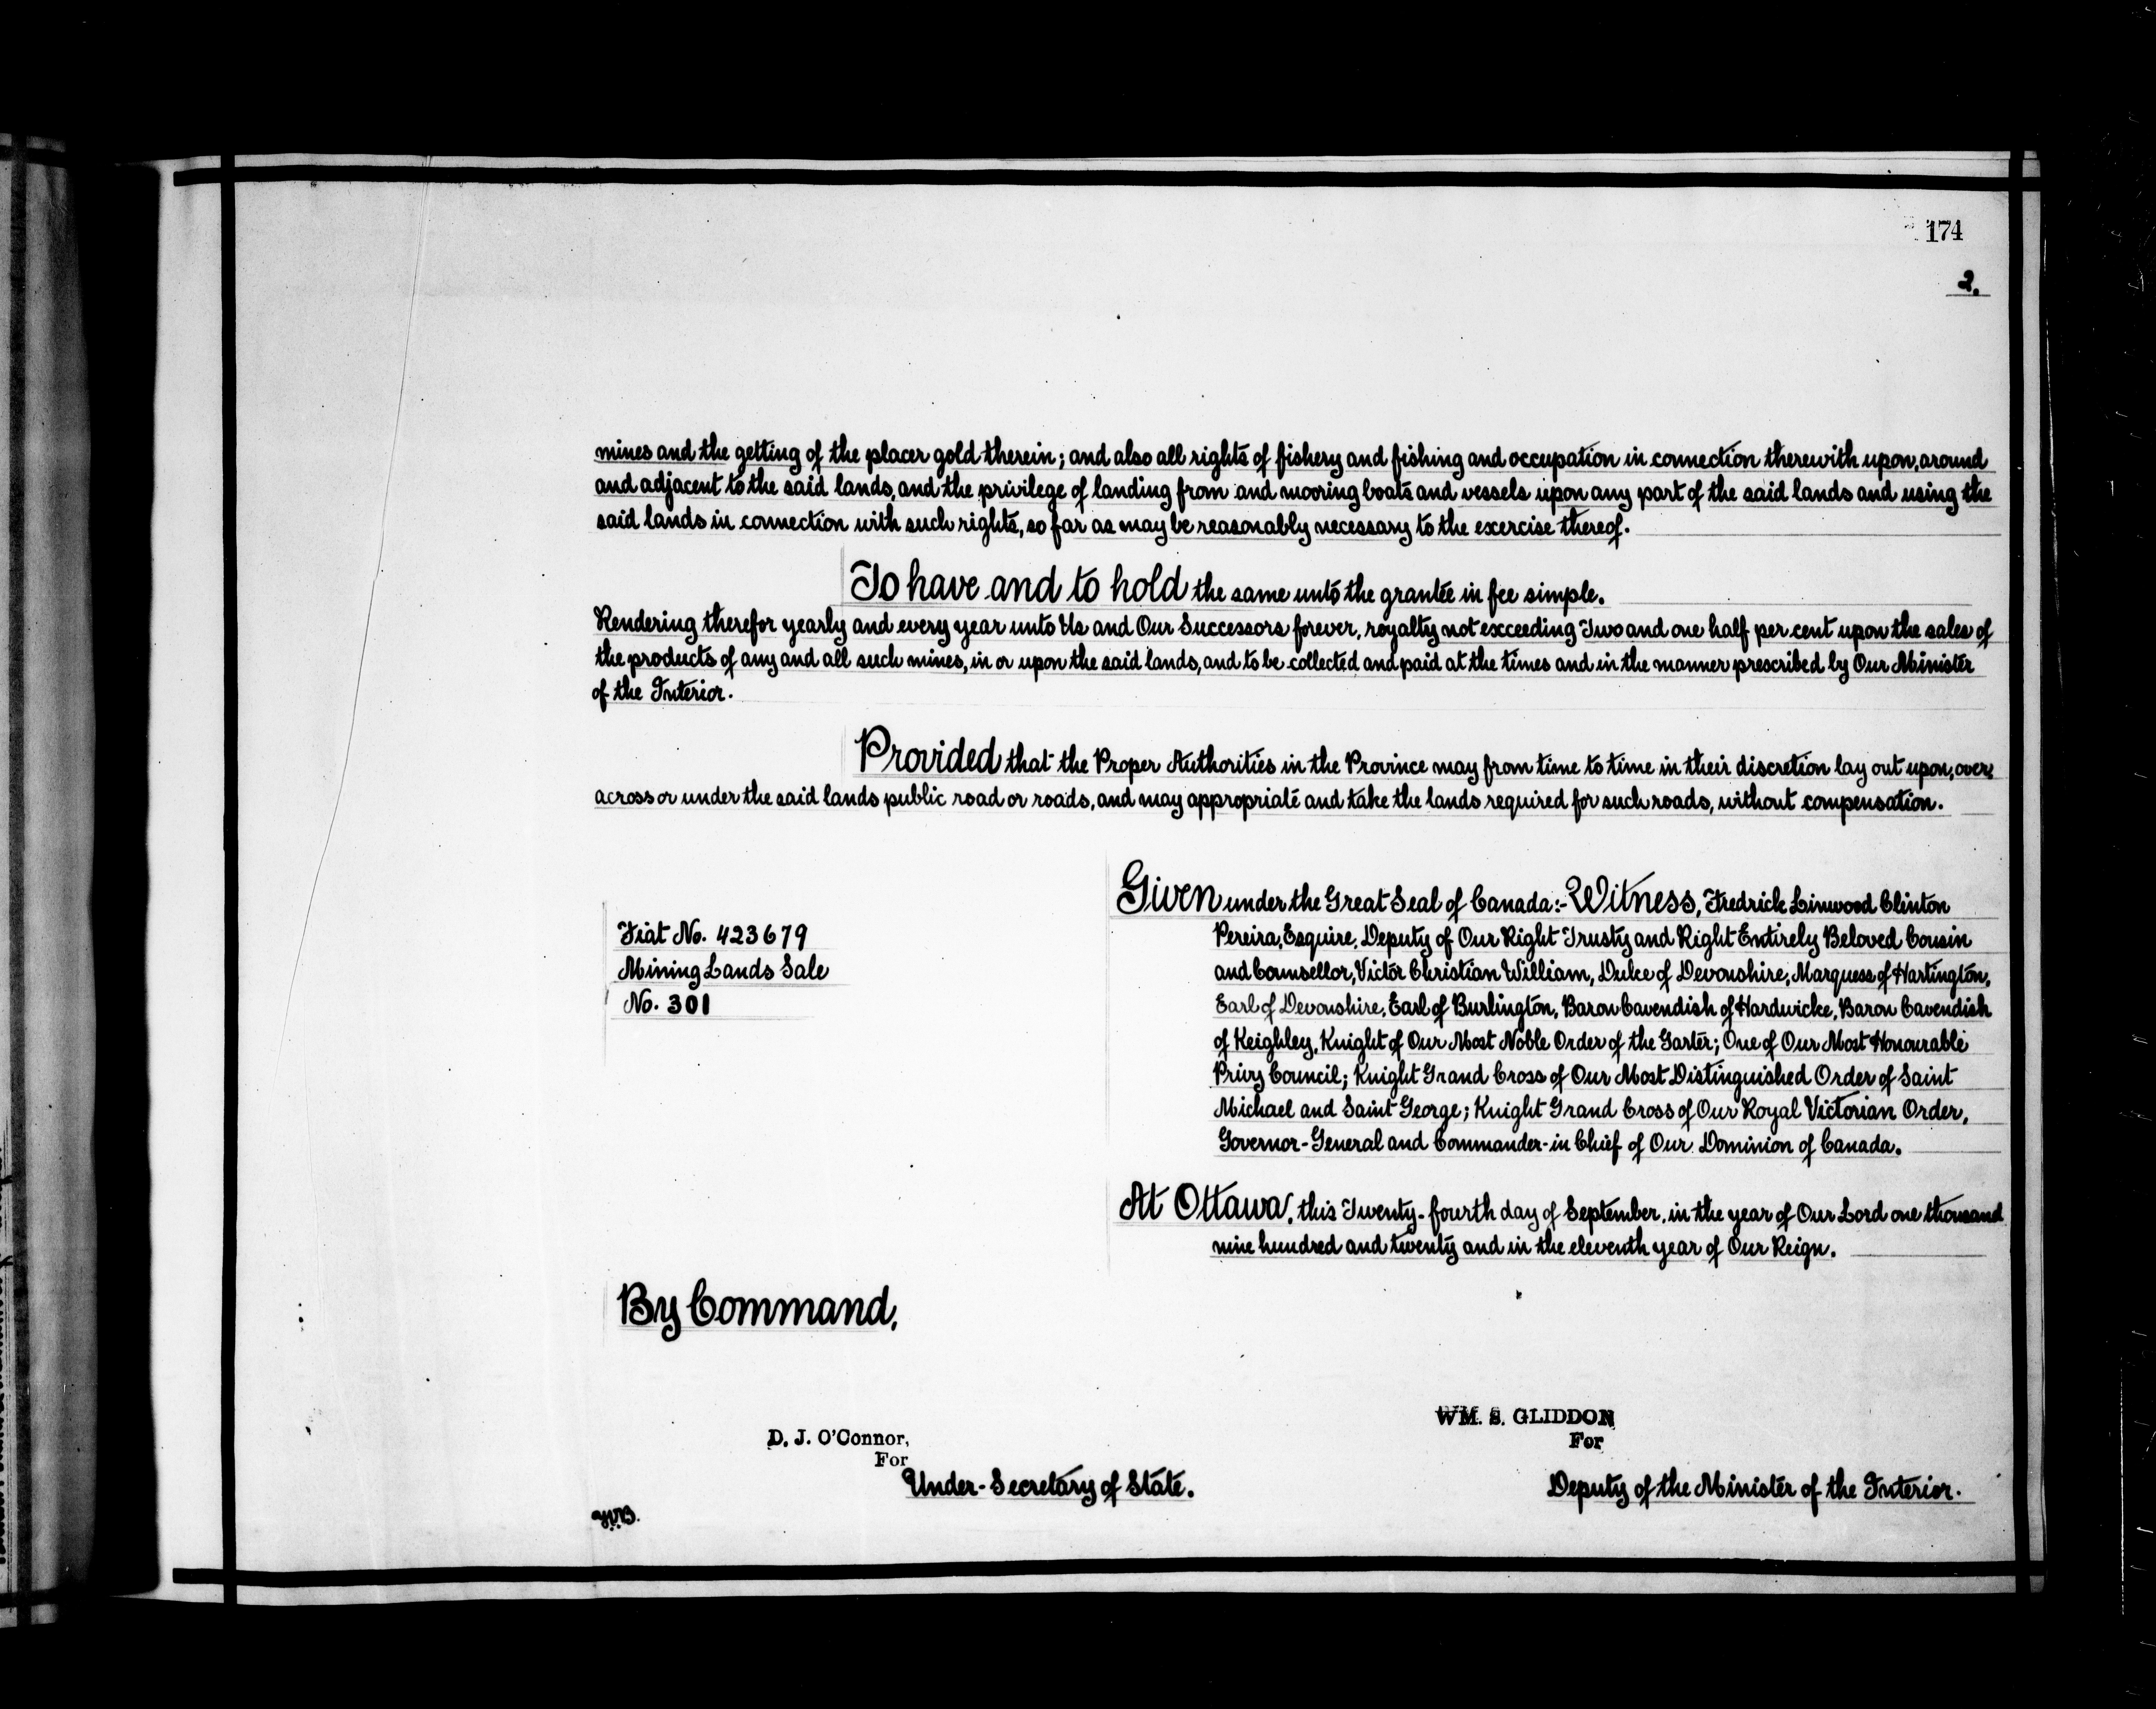 174
2.
mines and the getting of the placer gold therein; and also all rights of fishery and fishing and occupation in connection therewith upon, around
and adjacent to the said lands, and the privilege of landing from and mooring boats and vessels upon any part of the said lands and using the
said lands in connection with such rights, so far as may be reasonably necessary to the exercise thereof.
To have and to hold the same unto the grantee in fee simple.
Rendering therefor yearly and every year unto Us and Our Successors forever, royalty not exceeding Two and one half per cent upon the sales of
the products of any and all such mines, in or upon the said lands, and to be collected and paid at the times and in the manner prescribed by Our Minister
of the Interior.
Provided that the Proper Authorities in the Province may from time to time in their discretion lay out upon, over,
across or under the said lands public road or roads, and may appropriate and take the lands required for such roads, without compensation.
Fiat No. 423679
Mining Lands Sale
No. 301
Given under the Great Seal of Canada:- Witness, Fredrick Linwood Clinton
Pereira, Esquire, Deputy of Our Right Trusty and Right Entirely Beloved Cousin
and Counsellor, Victor Christian William, Duke of Devonshire, Marquess of Hartington,
Earl of Devonshire, Earl of Burlington, Baron Cavendish of Hardwicke, Baron Cavendish
of Keighley, Knight of Our Most Noble Order of the Garter; One of Our Most Honourable
Privy Council; Knight Grand Cross of Our Most Distinguished Order of Saint
Michael and Saint George; Knight Grand Cross of Our Royal Victorian Order,
Governor-General and Commander-in Chief of Our Dominion of Canada.
At Ottawa, this Twenty-fourth day of September, in the year of Our Lord one thousand
nine hundred and twenty and in the eleventh year of Our Reign.
By Command,
D. J. O'Connor,
For
Under-Secretary of State.
WM. S. GLIDDON
For
Deputy of the Minister of the Interior.